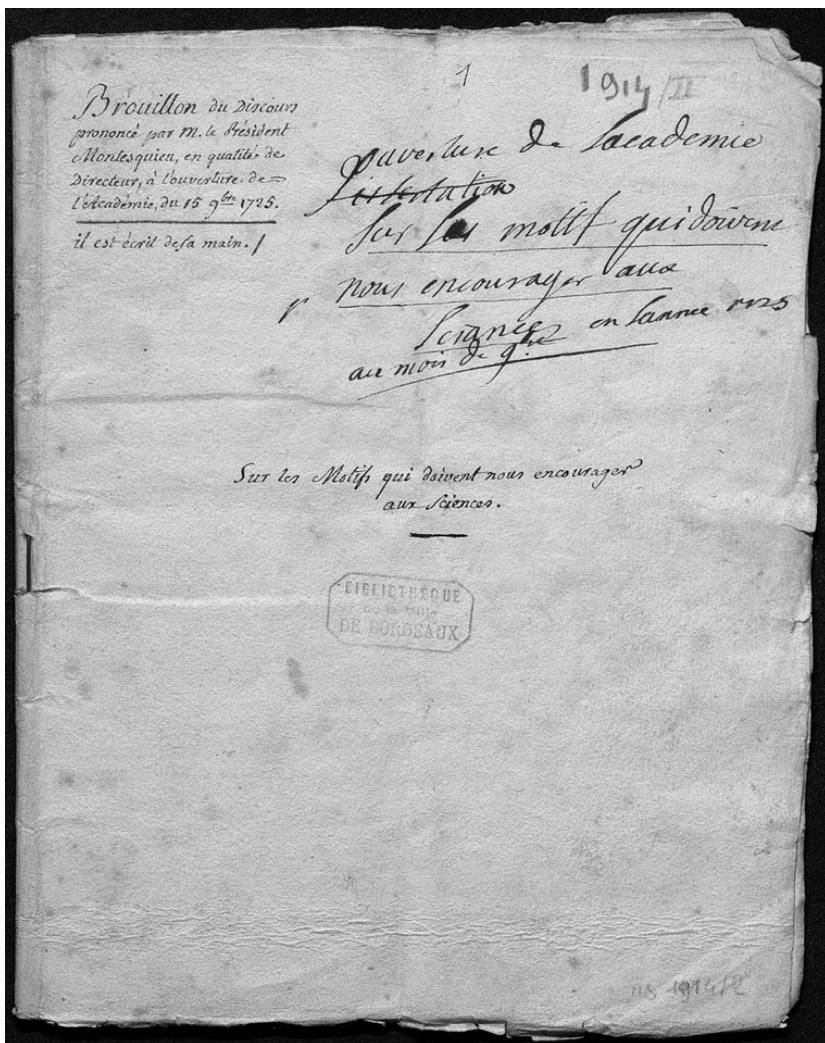 1
1914/II
Brouillon du Discours
prononcé par M. le Président
Montesquieu, en qualité de
Directeur, à l'ouverture de=
l'Académie, du 15 9bre 1725.
il est écrit de sa main. /
ouverture de lacademie
dissertation
Sur les motif qui doivent
nous encourager aux
sciances en lannee 1725
au mois de 9bre
Sur les Motifs qui doivent nous encourager
aux Sciences.
BIBLIOTHÈQUE
de la Ville
DE BORDEAUX
MS 1914/2